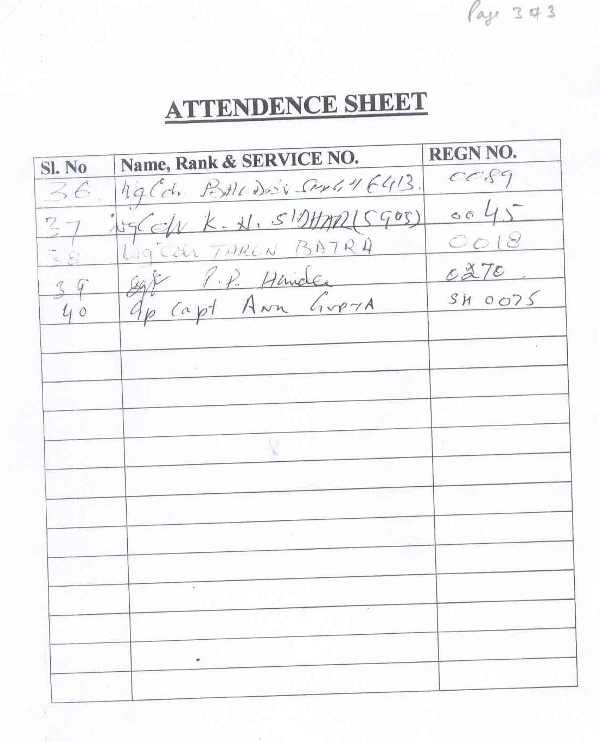 Page 3 of 3
ATTENDENCE SHEET
Sl. No Name, Rank & SERVICE NO. REGN NO.
36. Wg Cdr. 6413. 0089
37 Wg Cdr K. N. (5905) 0045
38 Wg Cdr TAREN BATRA 0018
39 Sgt P.P. 0270.
40 Gp Capt GUPTA SH 0075